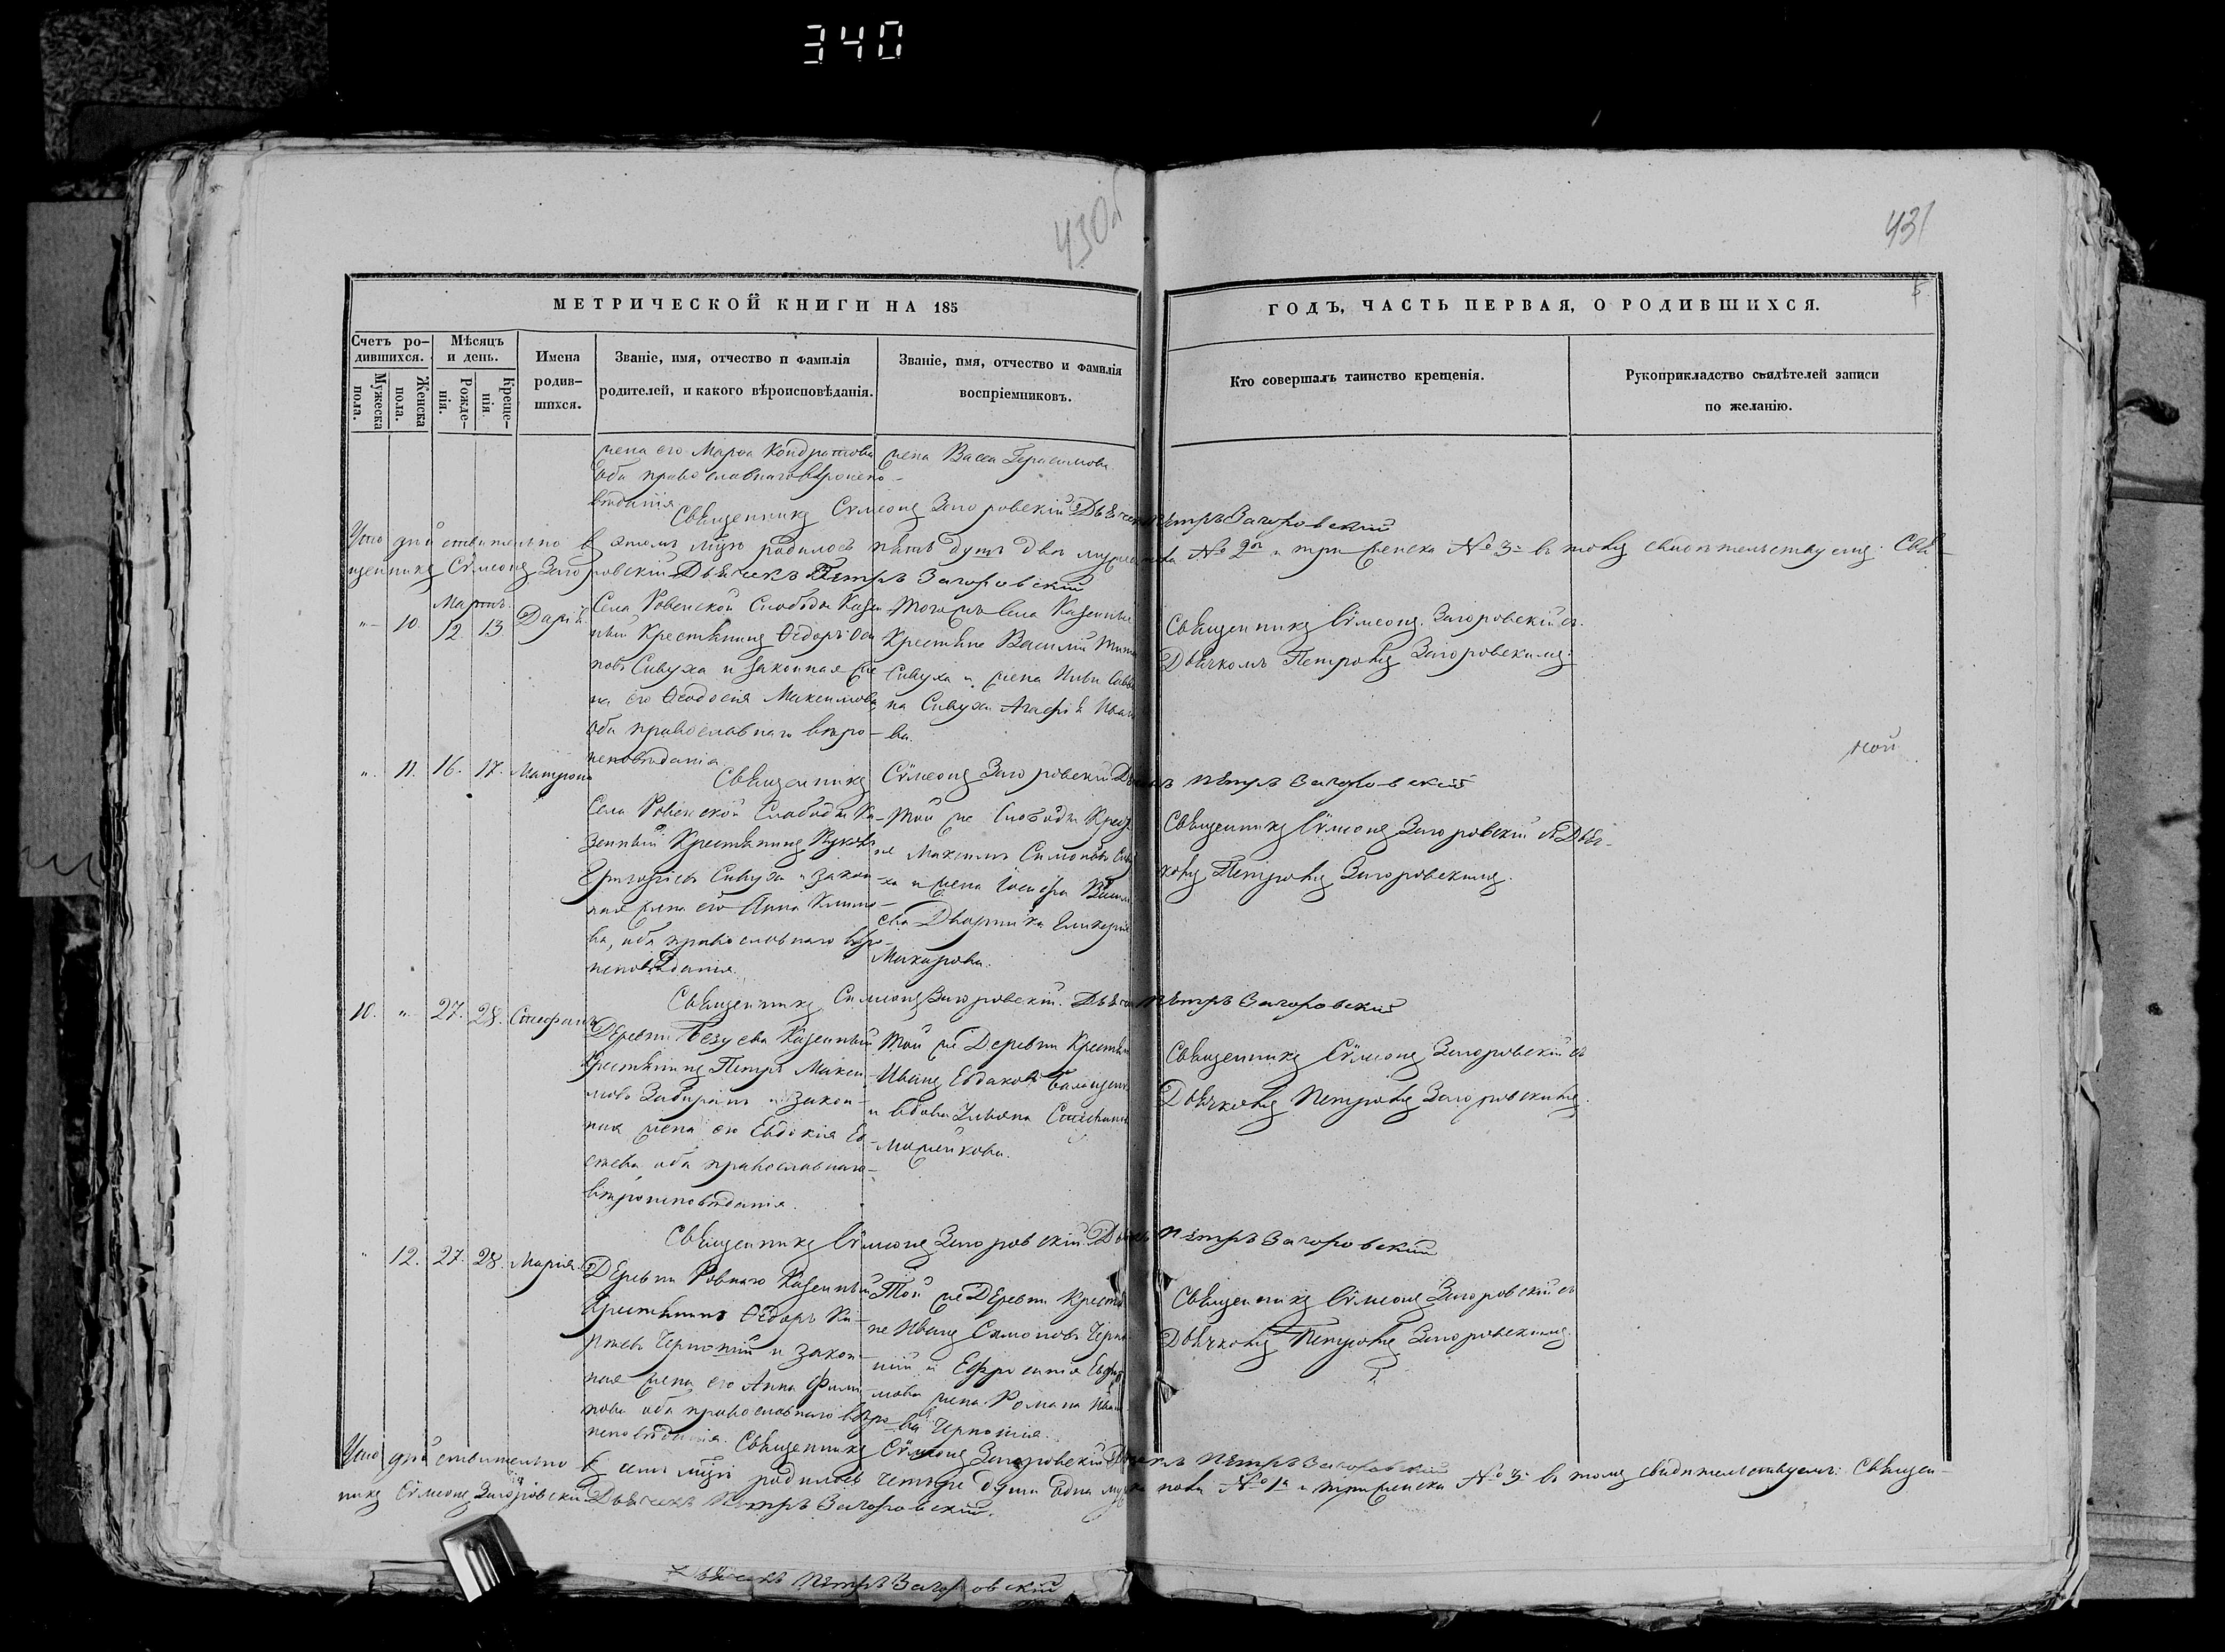 340
430об
431
МЕТРИЧЕСКОЙ КНИГИ НА 185
ГОДЪ, ЧАСТЬ ПЕРВАЯ, О РОДИВШИХСЯ.
Счетъ ро-
дившихся.
Мужеска
пола.
Женска
пола.
Мѣсяцъ
и день.
Рожде-
нія.
Креще-
нія
Имена
родив-
шихся.
Званіе, имя, отчество и фамилія
родителей, и какого вѣроисповѣданія.
Званіе, имя, отчество и фамилія
воспріемниковъ.
Кто совершалъ таинство крещенія.
Рукоприкладство свидѣтелей записи
по желанію.
жена его Марѳа Кондратова
оба православнаго вѣроиспо-
вѣданія
жена Васса Герасимова.
Священникъ Сѵмеонъ Загоровскій Дьячекъ Петръ Загоровскій
Что дѣйствительно въ этомъ мцѣ родилось пять душъ двѣ мужеска № 2й и три женска № 3й въ томъ свидѣтельствуемъ: Свя-
щенникъ Сѵмеонъ Загоровскій Дьячекъ Петръ Загоровскій
Мартъ
" 10. 12. 13. Дарія
Села Ровенской Слободы Казен-
ный Крестьянинъ Ѳедоръ Оси
повъ Сивуха и законная же
на его Ѳеодосія Максимова
оба православнаго вѣро-
исповѣданія
Тогожъ Села Казенные
Крестьяне Василій
Сивуха и жена
на Сивухи Агафія Ивано
ва.
Священникъ Сѵмеонъ Загоровскій съ
Дьячкомъ Петромъ Загоровскимъ.
Священникъ Сѵмеонъ Загоровскій Дьячекъ Петръ Загоровскій
" 11. 16. 17. Матрона
Села Ровенской Слободы Ка-
зенный Крестьянинъ
Григорьевъ Сивуха и закон
ная жена его Анна Климо-
ва, оба православнаго вѣро-
исповѣданія
Той же Слободы Кресть
не Максимъ Симоновъ Сиву
ха и жена Іосифа
Дворника Гликерія
Макарова.
Священникъ Сѵмеонъ Загоровскій съ Дьяч-
комъ Петромъ Загоровскимъ.
Священникъ Симеонъ Загоровскій. Дьячекъ Петръ Загоровскій
10. " 27. 28. Стефанъ
Деревни Казенный
Крестьянинъ Петръ Макси
мовъ и закон-
ная жена его Евдокія Ев
сѣева оба православнаго
вѣроисповѣданія.
Той же Деревни Крестьян
Иванъ
и вдова Ульяна Степанова
Священникъ Сѵмеонъ Загоровскій съ
Дьячкомъ Петромъ Загоровскимъ.
Священникъ Сѵмеонъ Загоровскій Дьячекъ Петръ Загоровскій
" 12. 27. 28. Марія.
Деревни Ровнаго Казенный
Крестьянинъ Ѳедоръ Ки-
рѣевъ Чернышій и закон
ная жена его Анна Фили
пова оба православнаго вѣро
исповѣданія.
Той же Деревни Крестья
не Иванъ Симоновъ Черны
шій и Ефросинія Ефи
мова жена Романа Ивано
ва Чернышія.
Священникъ Сѵмеонъ Загоровскій съ
Дьячкомъ Петромъ Загоровскимъ.
Священникъ Сѵмеонъ Загоровскій Дьячекъ Петръ Загоровскій
Что дѣйствительно въ семъ мцѣ родилось четыре души одна мужеска пола № 1й и три женска № 3й въ томъ свидѣтельствуемъ: Священ-
никъ Сѵмеонъ Загоровскій Дьячекъ Петръ Загоровскій.
Дьячекъ Петръ Загоровскій